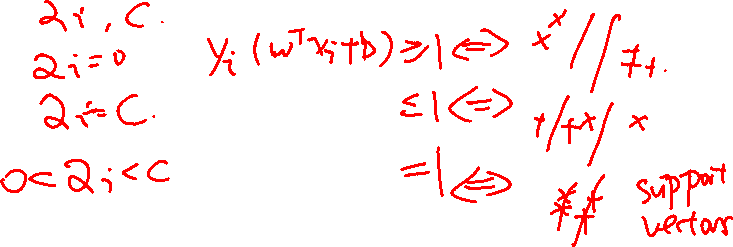 2i, C.
2i=0 yi (wᵀxi+b) ≥ 1 ⇔ x x // ++.
2i=C. ≤ 1 ⇔ +/+x/ x
0<2i<C =1 ⇔ support vectors